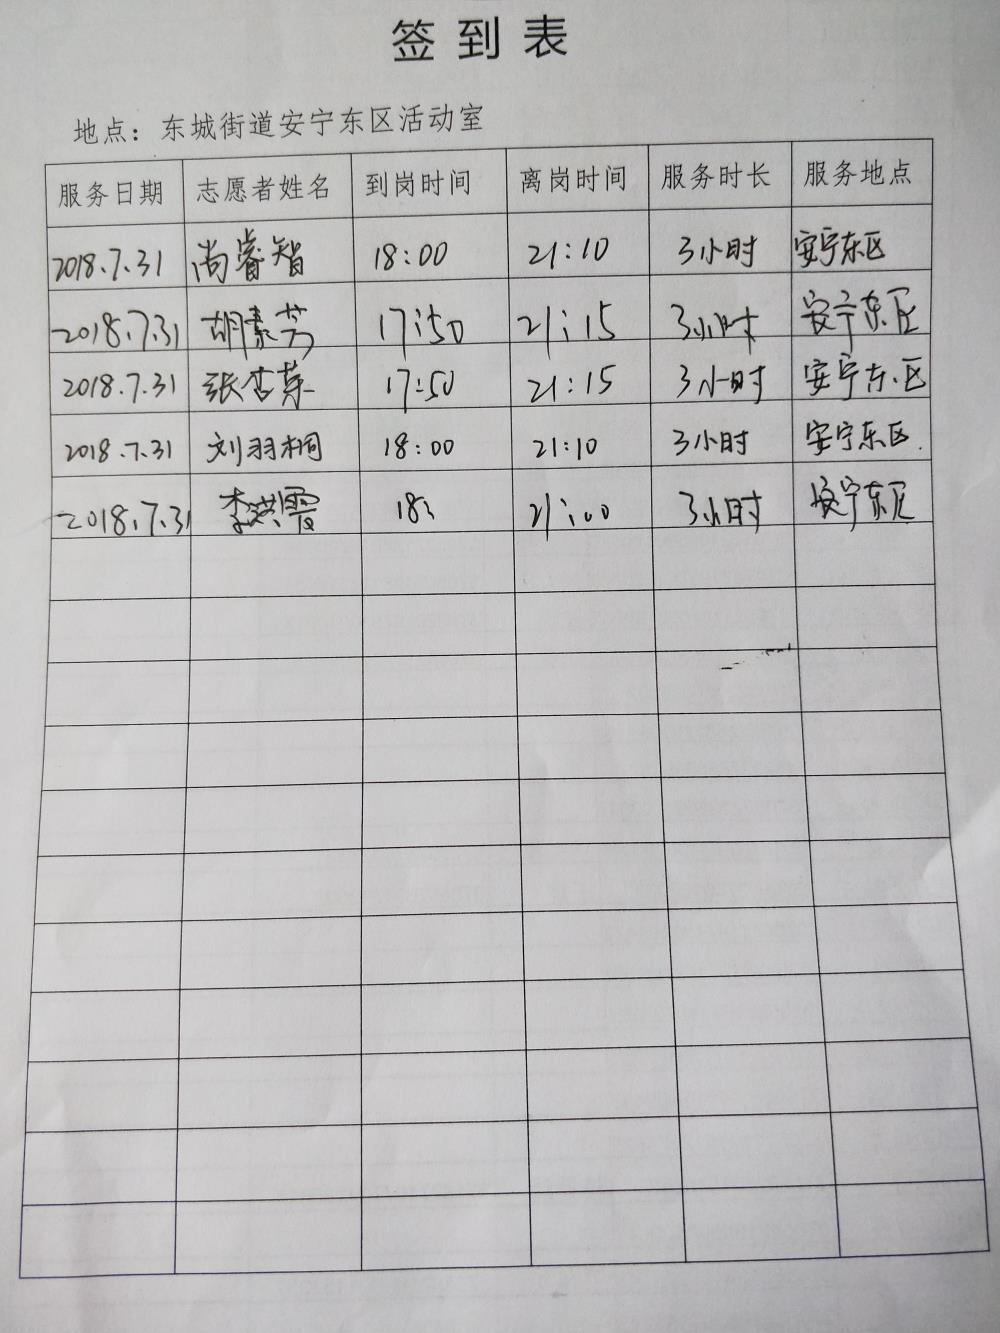 签到表
地点：东城街道安宁东区活动室
服务日期 志愿者姓名 到岗时间 离岗时间 服务时长 服务地点
2018.7.31 尚睿智 18:00 21:10 3小时 安宁东区
2018.7.31 胡素芳 17:50 21:15 3小时 安宁东区
2018.7.31 张杏芽 17:50 21:15 3小时 安宁东区
2018.7.31 刘羽桐 18:00 21:10 3小时 安宁东区.
2018.7.31 李洪霞 18: 21:00 3小时 安宁东区